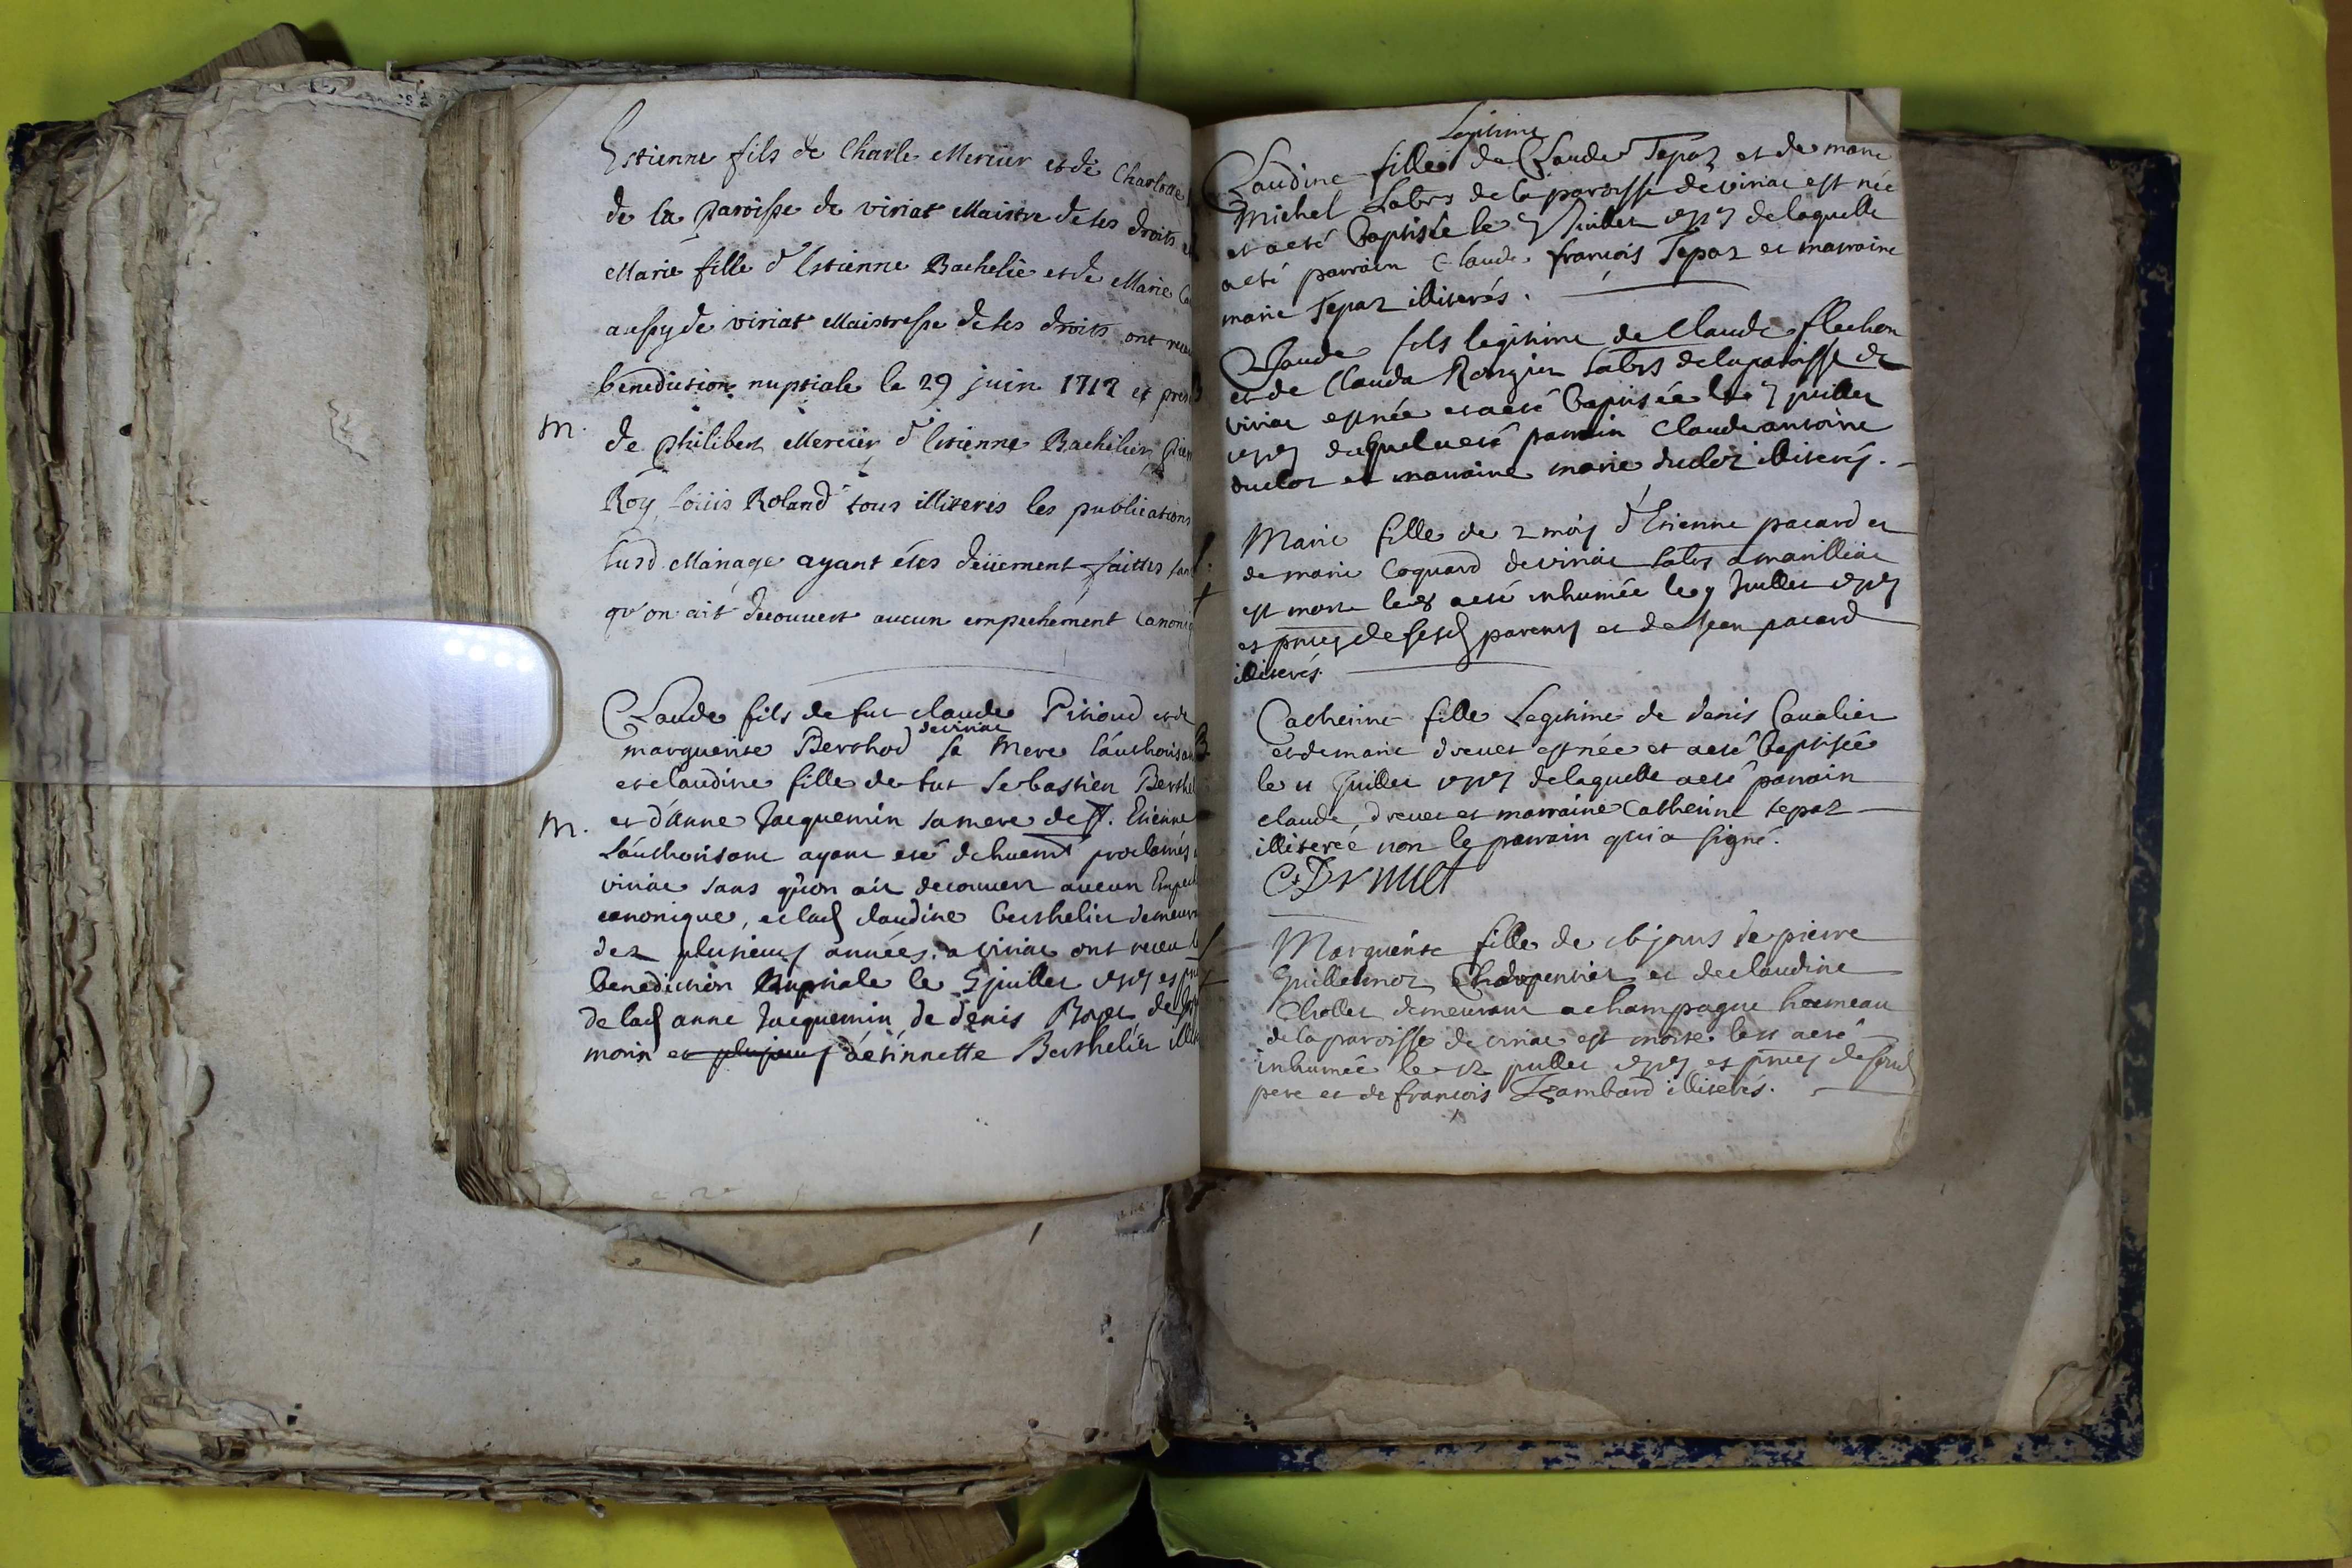 Estienne fils de Charle Mercier et de Charlotte
de la paroisse de viriat Maistre de ses droits et
Marie fille d'Estienne Bachelie et de Marie
aussy de viriat Maistresse de ses droits ont receu
benediction nuptiale le 29 juin 1717 es pres
M.
de philibert Mercier d'Estienne Bachelier
Roy, Loüis Roland tous illiterés les publications
dusd. Mariage ayant étés deüement faittes sans
qu'on ait decouvert aucun empechement Canoniq
Claude fils de fut claude Pitioud et de
de viriac
marguerite Berthod sa Mere l'authorisant
et claudine fille de fut Sebastien Berthel
M.
et d'Anne Jacquemin sa mere de St. Etienne
l'authorisant ayant eté dehuemt proclamés
viriac sans qu'on ait decouvert aucun Empech
canonique, et lad claudine berthelier demeurant
dez plusieurs années a viriac ont receu la
benediction Nuptiale le 5 juillet 1717 es pnt
de lad anne Jacquemin, de denis Boyer de
morin et plusieurs d'étinnette Berthelier illit
Legitime
Claudine fille de Claude Tepaz et de marie
Michel Labrs de la paroisse de viriac est née
et a eté baptisée le 7 juillet 1717 de laquelle
a eté parrain Claude françois Tepaz et marraine
marie Tepaz illiterés.
Claude fils legitime de Claude flechon
et de Clauda Rongier Labrs de la paroisse de
viriac est née et a eté baptisée le 7 juillet
1717 duquel a eté parrain Claude antoine
duclos et marraine marie duclos illiterés.
Marie fille de 2 mois d'Etienne pacard et
de marie Coquard de viriac Labrs a marilliac
est morte le 8 a eté inhumée le 9 Juillet 1717
es pnces de sesd parents et de Jean pacard
illiterés.
Catherine fille Legitime de denis Cavalier
et de marie drevet est née et a eté baptisée
le 11 Juillet 1717 de laquelle a eté parrain
claude drevet et marraine Catherine tepaz
illiterée non le parrain qui a signé.
C. Drevuet
Marguerite fille de 16 jours de pierre
Guillermoz Charpentier et de claudine
Chollet demeurant a champagne hameau
de la paroisse de viriac est morte le 11 a eté
inhumée le 12 juillet 1717 es pnces de sond
pere et de françois Gambard illiterés.